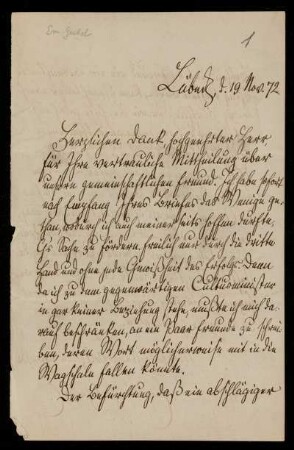 Em. Geibel
1
Lübeck, d. 19 Nov. 72.
Herzlichen Dank, hochgeehrter Herr
für Ihre vertrauliche Mittheilung über
unsern gemeinschaftlichen Freund. Ich habe sofort
nach Empfang Ihres Briefes das Wenige ge-
than, wodurch ich auch meinerseits hoffen durfte,
die Sache zu fördern, freilich nur durch die dritte
Hand und ohne jede Gewißheit des Erfolgs. Denn
da ich zu dem gegenwärtigen Cultusminister
in gar keiner Beziehung stehe, mußte ich mich da-
rauf beschränken, an ein Paar Freunde zu schrei-
ben, deren Wort möglicherweise mit in die
Wagschale fallen könnte.
Der Befürchtung, daß ein abschlägiger